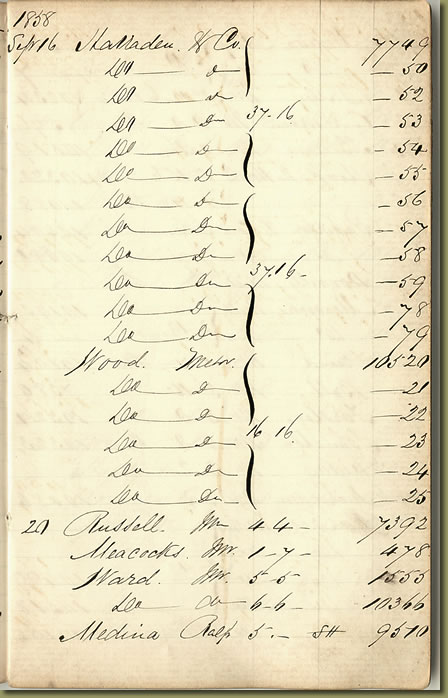 1858
Sept 16 Hattaden. & Co. 7749
Do — do — 50
Do — do — 52
Do — do 37.16. — 53
Do — do — 54
Do — do — 55
Do — do — 56
Do — do — 57
Do — do — 58
Do — do 37.16 - — 59
Do — do — 78
Do — do — 79
Wood. Messrs. 10520
Do — do — 21
Do — do — 22
Do — do 16 16. — 23
Do — do — 24
Do — do — 25
20 Russell. Mr 4 4 - 7392
Meacocks. Mr. 1 - 7 - 478
Ward. Mr. 5 - 5 1555
Do — do 6 - 6 - 10366
Medina Ralp 5. - 9570